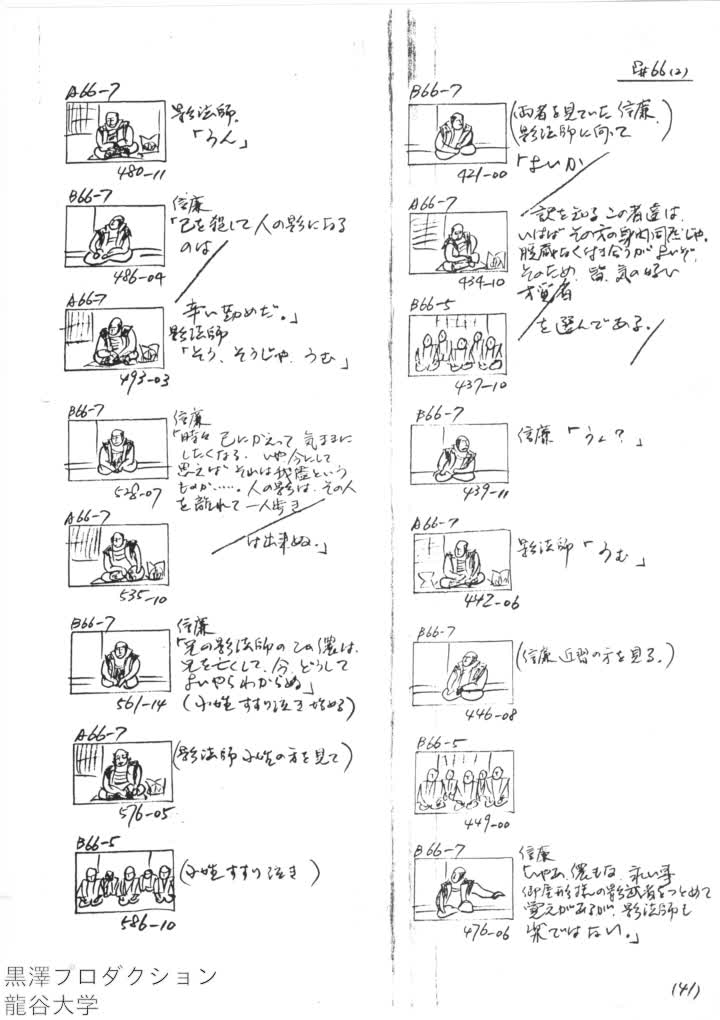 S#66(2)
B66-7
(両者を見ていた信廉、
影法師に向って)
「よいか
421-00
A66-7
訳を知るこの者達は、
いはばその方の身内同然じゃ。
そのため、皆、気の好い
434-10
B66-5
を選んである。
437-10
B66-7
信廉「うん?」
439-11
A66-7
影法師「うむ」
442-06
B66-7
(信廉近習の方を見る。)
446-08
B66-5
449-00
B66-7
信廉
御屋形様の影武者をつとめて
覚えがあるが、影法師も
楽ではない。」
476-06
(41)
A66-7
影法師、
「うん」
480-11
B66-7
信廉
「己を殺して人の影になる
のは
486-04
A66-7
辛い勤めだ。」
影法師
「そう、そうじゃ、うむ」
493-03
B66-7
信廉
「時々己にかえって気ままに
したくなる、いや今にして
思えばそれは我儘という
ものか……。人の影は、その人
を離れて一人歩き
528-07
A66-7
は出来ぬ。」
535-10
B66-7
信廉
「兄の影法師のこの儂は、
兄を亡くして、今、どうして
よいやらわからぬ」
(小姓すすり泣き始める)
561-14
A66-7
(影法師小姓の方を見て)
576-05
B66-5
(小姓すすり泣き)
586-10
黒澤プロダクション
龍谷大学